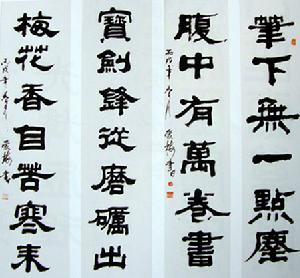 筆下無一點塵
腹中有萬卷書
寶劍鋒從磨礪出
梅花香自苦寒來